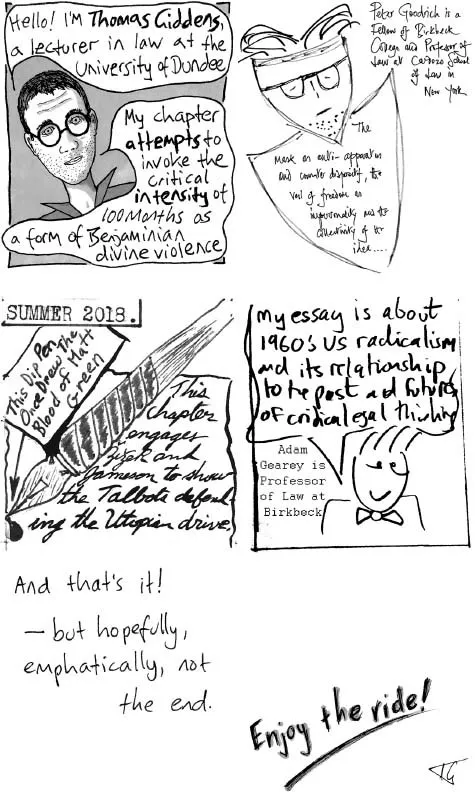 Hello! I'm Thomas Giddens,
a lecturer in law at the
University of Dundee
My chapter
attempts to
invoke the
critical
intensity of
100Months as
a form of Benjaminian
divine violence
Peter Goodrich is a
Fellow of Birkbeck
College and Professor of
Law at Cardozo School
of Law in
New York
The
mask an anti-apparatus
and counter dispositif, the
veil of freedom as
impersonality and the
collectivity of the
idea....
SUMMER 2018.
This Dip Pen
Once Drew The
Blood of Matt
Green
This
Chapter
engages
Zizek and
Jameson to show
the Talbots defend-
ing the Utopian drive.
my essay is about
1960's US radicalism
and its relationship
to the past and futures
of critical legal thinking
Adam
Gearey is
Professor
of Law at
Birkbeck
And that's it!
– but hopefully,
emphatically, not
the end.
Enjoy the ride!
TG